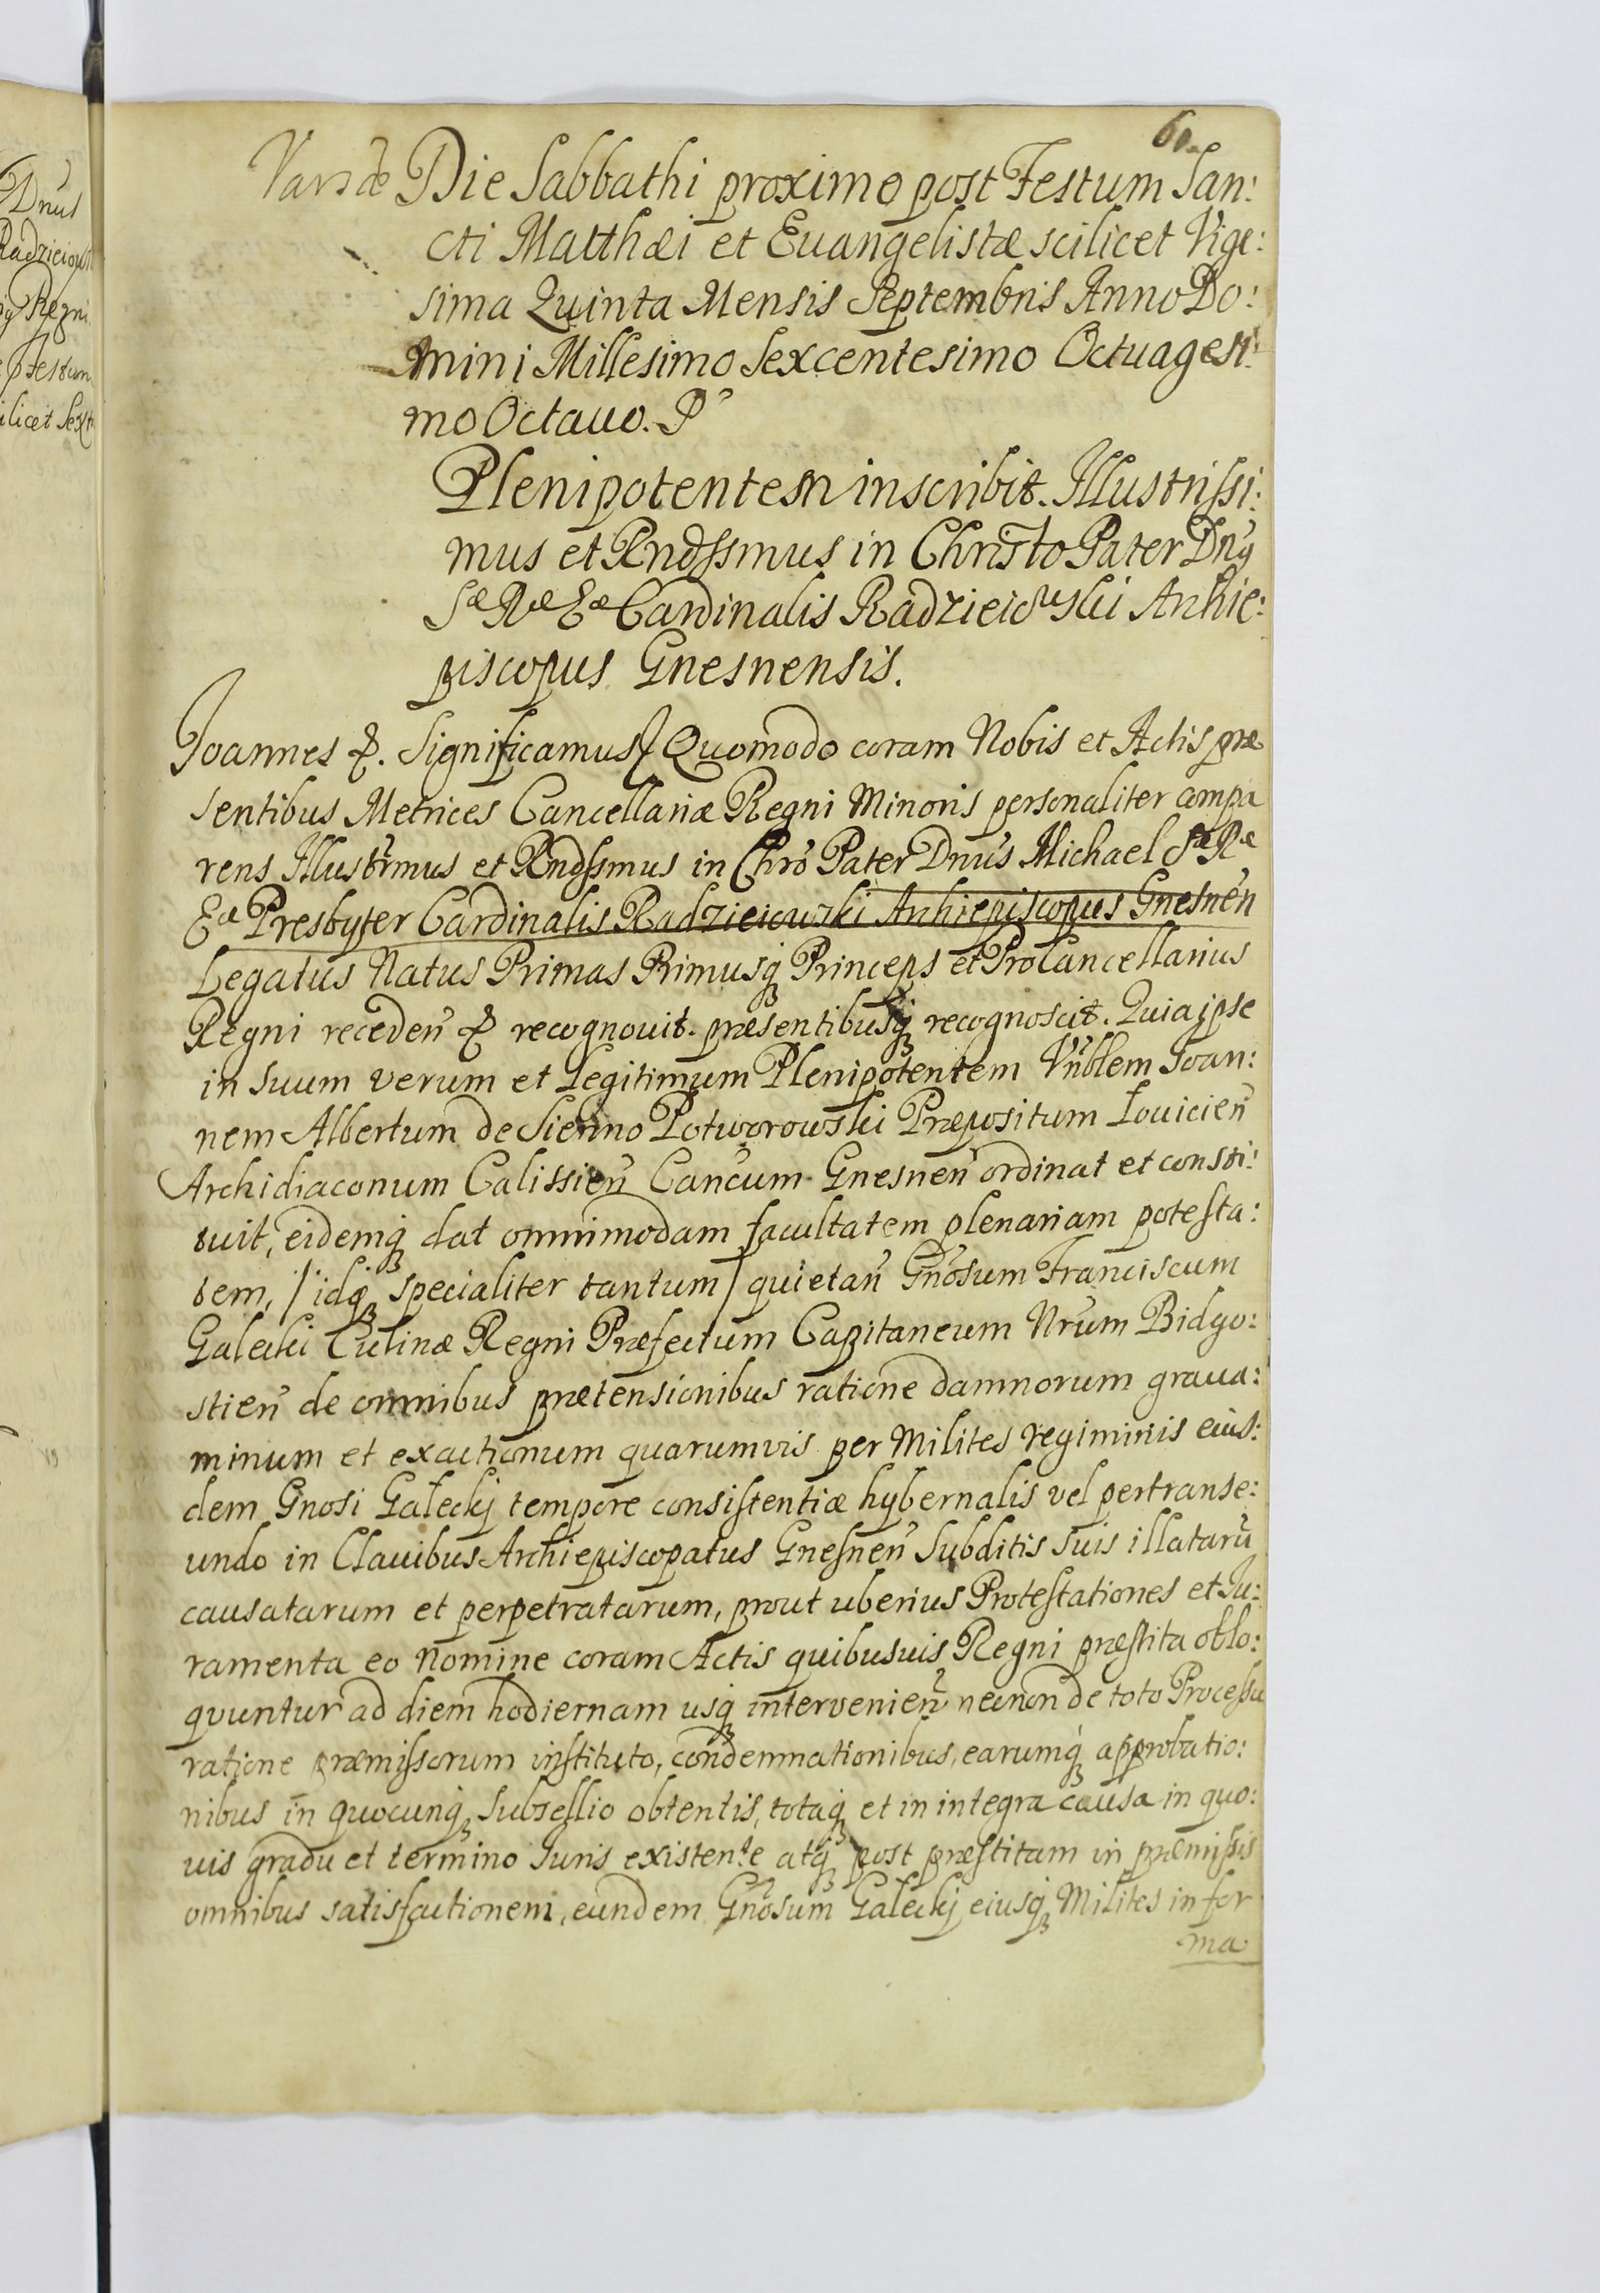 Dnus
Radzieiows
Regni
Festum
ilicet Sext
60
Varsæ Die Sabbathi proximo post Festum San:
cti Matthæi et Euangelistæ scilicet Vige:
sima Quinta Mensis Septembris Anno Do:
mini Millesimo Sexcentesimo Octuagesi:
mo Octauo.
Plenipotentem inscribit. Illustrissi:
mus et Rndssmus in Christo Pater Dnus
Sæ Ræ Eæ Cardinalis Radzieiowski Arhie:
piscopus Gnesnensis.
Joannes &. Significamus / Quomodo coram Nobis et Actis præ
sentibus Metrices Cancellariæ Regni Minoris personaliter compa
rens Illustrmus et Rndssmus in Chro Pater Dnus Michael Sæ Ræ
Eæ Presbyter Cardinalis Radzieiowski Arhiepiscopus Gnesnen
Legatus Natus Primas Primusq Princeps et ProCancellarius
Regni receden & recognouit. præsentibusq recognoscit. Quia ipse
in suum verum et Legitimum Plenipotentem Vnblem Joan:
nem Albertum de Sienno Potworowski Præpositum Louicien
Archidiaconum Calissien Cancum Gnesnen ordinat et consti:
tuit, eidemq dat omnimodam facultatem plenariam potesta:
tem, / idq specialiter tantum / quietan Gnosum Franciscum
Galecki Culinæ Regni Præfectum Capitaneum Nrum Bidgo:
stien de omnibus prætensionibus ratione damnorum graua:
minum et exactionum quarumvis per Milites regiminis eius:
dem Gnosi Galeckj tempore consistentiæ hybernalis vel pertranse:
undo in Clauibus Archiepiscopatus Gnesnen Subditis suis illataru
causatarum et perpetratarum, prout uberius Protestationes et Ju:
ramenta eo nomine coram Actis quibusuis Regni præstita oblo:
quuntur ad diem hodiernam usq intervenien necnon de toto Processu
ratione præmissorum instituto, condemnationibus, earumq approbatio:
nibus in quocunq Subsellio obtentis, totaq et in integra causa in quo:
uis gradu et termino Juris existente atq post præstitam in præmissis
omnibus satisfactionem, eundem Gnosum Galeckj eiusq Milites in for
ma